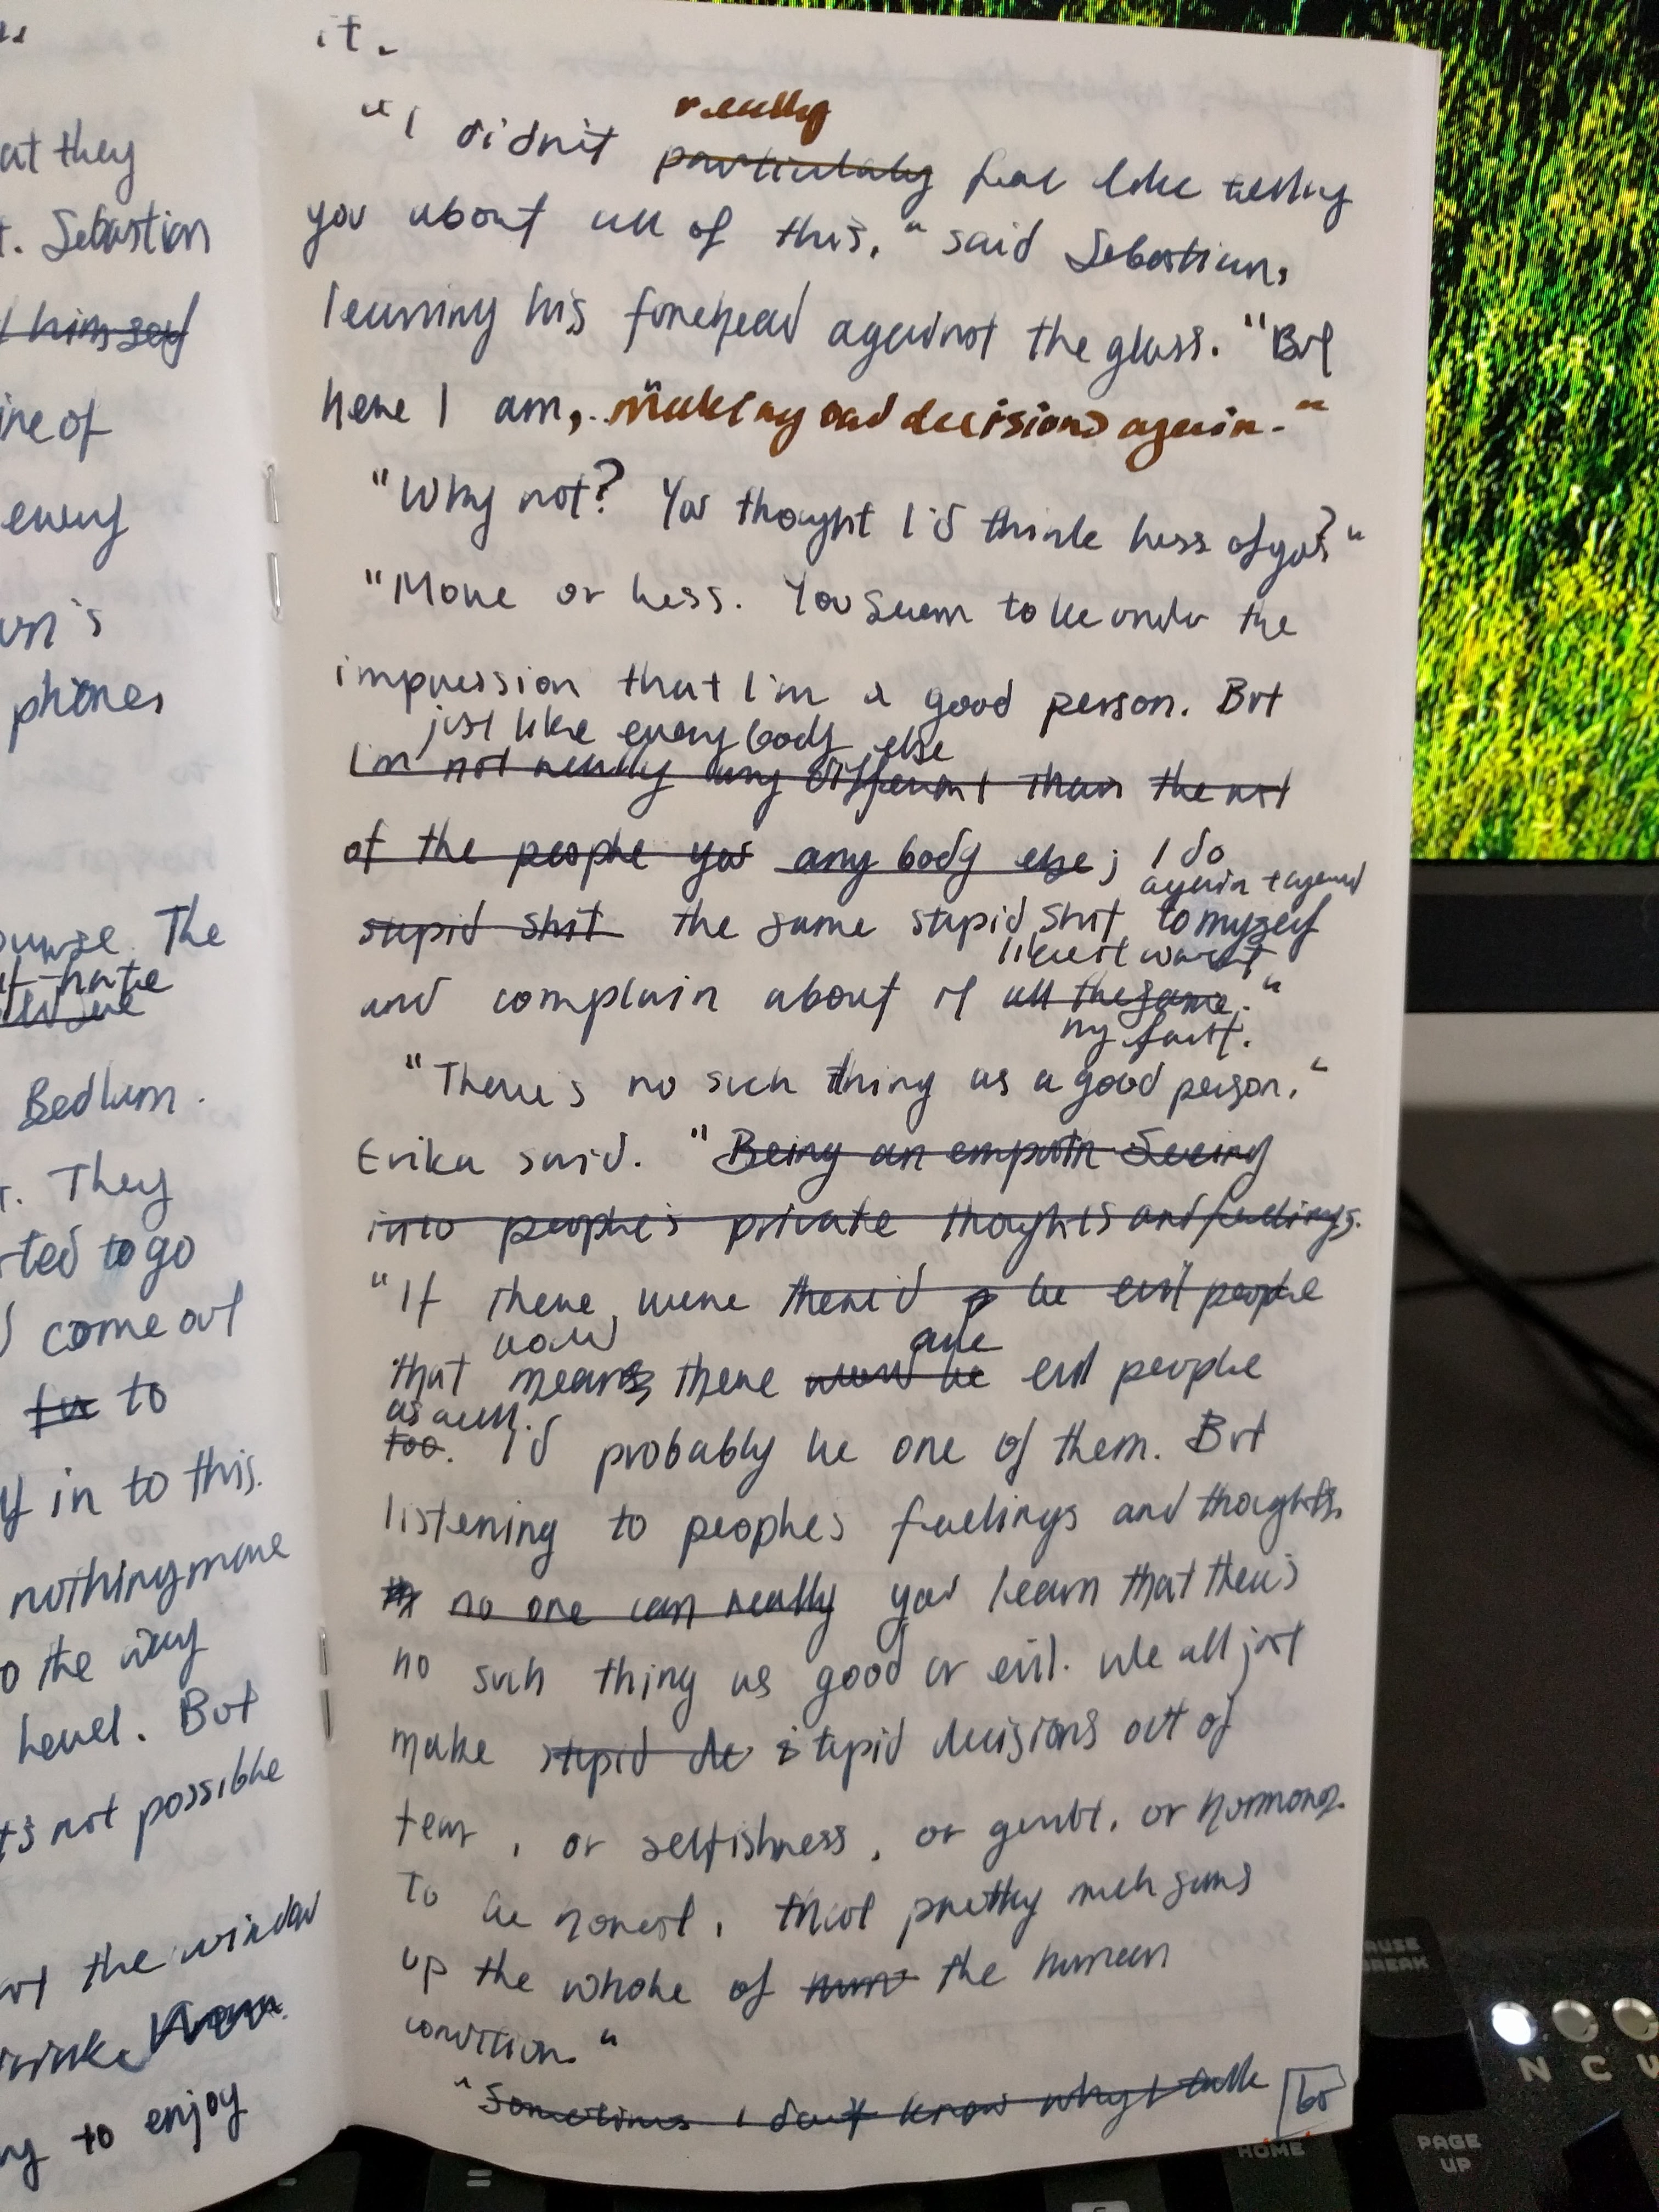 at they
Sebastian
himself
ine of
every
phones
The
Bedlam.
They
ted to go
come out
to
in to this.
nothing more
the way
level. But
not possible
the window
to enjoy
it.
really
"I didn't particularly feel like telling
you about all of this," said Sebastian,
leaning his forehead against the glass. "But
here I am, making bad decisions again."
"Why not? You thought I'd think less of you?"
"More or less. You seem to be under the
impression that I'm a good person. But
just like everybody else
I'm not really any different than the rest
of the people you any body else; I do
again + again
stupid shit the same stupid shit to myself
like it wasn't
and complain about it all the same."
my fault.
"There's no such thing as a good person,"
Erika said. "Being an empath Seeing
into people's private thoughts and feelings.
"If there were there'd be evil people
would are
that means there would be evil people
as well.
too. I'd probably be one of them. But
listening to people's feelings and thoughts,
no one can really you learn that there's
no such thing as good or evil. We all just
make stupid de stupid decisions out of
fear, or selfishness, or guilt, or hormones.
To be honest, that pretty much sums
up the whole of hum the human
condition."
"Sometimes I don't know why I talk
60
PAUSE
BREAK
N C
HOME
PAGE
UP